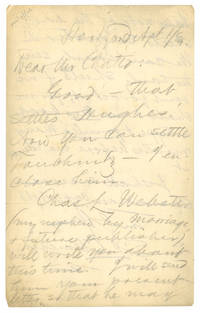 Hartford Apl 1/84.
Dear Mr Chatto:
Good — that
settles Hughes;
now you can settle
Tauchnitz — I en-
close him.
Chas L. Webster
(my nephew by marriage
& future publisher)
will write you about
this time. I will send
him your present
letter, so that he may